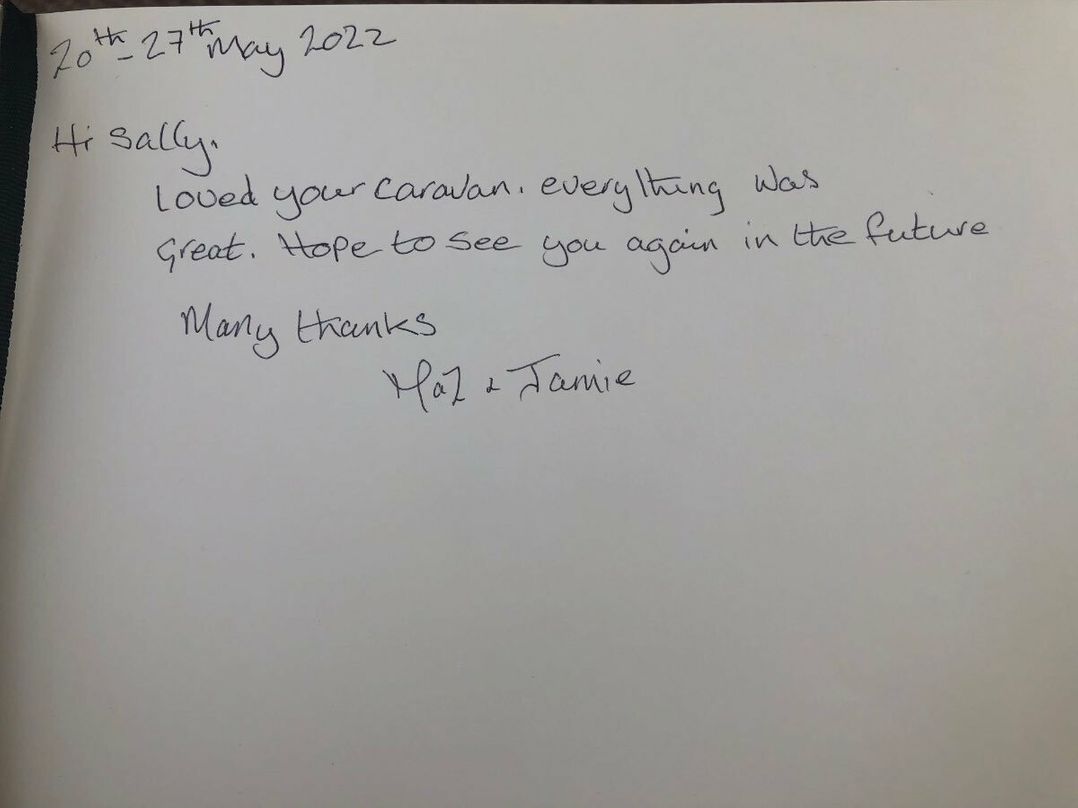 20th - 27th May 2022
Hi Sally.
Loved your caravan. everything was
Great. Hope to see you again in the future
Many thanks
Maz & Jamie